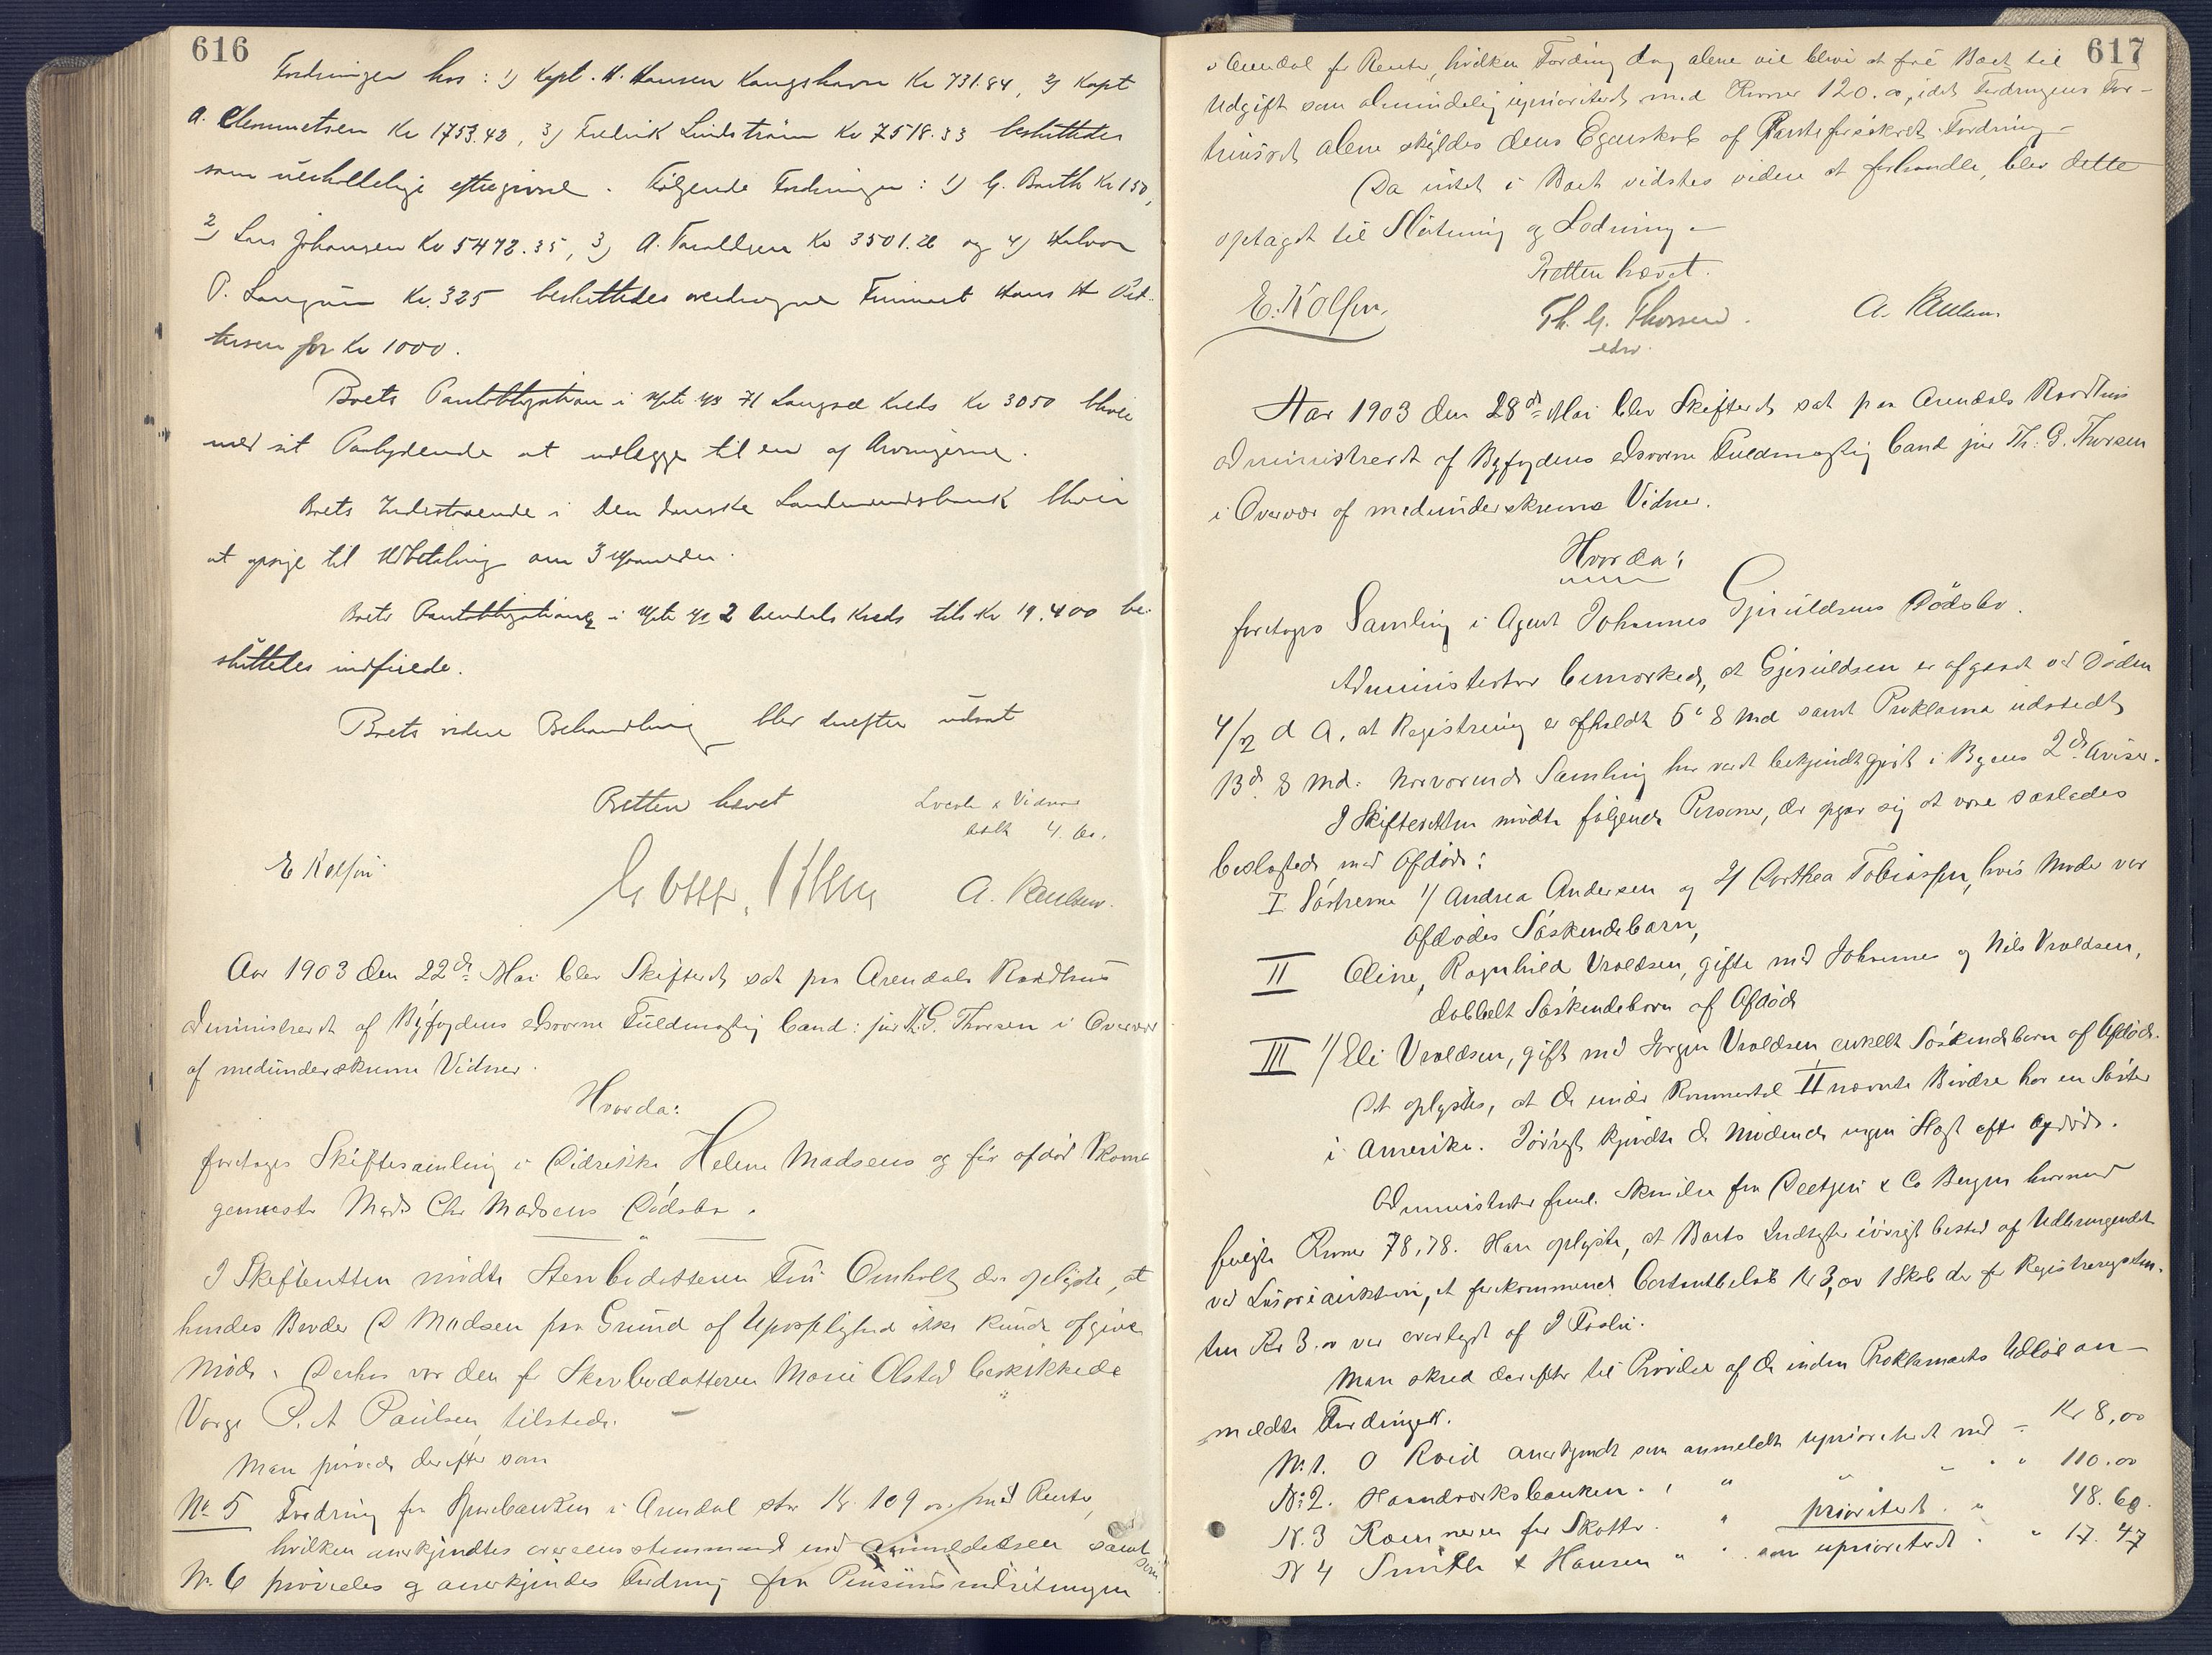 616
Fordringer hos: 1) Kapt. H. Hansen Kongshavn Kr 731.84, 2) Kapt
A. Clemmetsen Kr 1753.42, 3) Fredrik Lindstrøm Kr 7518.33 besluttedes
som uerholdelige eftergivne. Følgende Fordringer: 1) G. Barth Kr 150,
2) Lars Johansen Kr 5472.35, 3) A. Kr 3501.26 og 4) Halvor
P. Langum Kr. 325 besluttedes overdragne Hans H Ped-
tersen for Kr 1000.
Boets Pantobligation i Mtr No 71 Langsæ Kreds Kr 3050 bliver
med sit Paalydende at udlegge til en af Arvingerne.
Boets Indestaaende i den danske Landmandsbank bliver
at opsige til Udbetaling om 3 Maaneder.
Boets Pantobligationer i Mtr No 2 Arendals Kreds tils Kr 19.400 be-
sluttedes indfriede.
Boets videre Behandling blev derefter udsat
Retten hævet
Vidner
4. Kr.
E Kolfsen
A. Paulsen.
Aar 1903 den 22de Mai blev Skifteret sat paa Arendals Raadhus
administreret af Byfogdens edsvorne Fuldmægtig Cand: jur Th. G. Thorsen i Overvær
af medunderskrevne Vidner.
Hvorda:
foretoges Skiftesamling i Didrikke Helene Madsens og før afdød
Mads Chr Madsens Dødsbo.
I Skifteretten mødte Stervbodatteren Omholt der oplyste, at
hendes Broder D Madsen paa Grund af Upasselighed ikke kunde afgive
Møde. Derhos var den for Stervbodatteren Marie Olsted beskikkede
Verge P. A Paulsen tilstede.
Man prøvede derefter som
No 5 Fordring fra Sparebanken i Arendal stor Kr. 109 med Rente,
hvilken anerkjendtes overensstemmende med anmeldelsen samt
som
No. 6 prøvedes og anerkjendes Fordring fra Pensionsindretningen
617
i Arendal for Rente, hvilken Fordring dog alene vil blive at føre Boet til
Udgift som almindelig uprioriteret med Kroner 120.00, idet Fordringens For-
trinsret alene skyldes dens Egenskab af Panteforsikret Fordring.
Da intet i Boet vidstes videre at forhandle, blev dette
optaget til Slutning og Lodning.
Retten hævet.
E. Kolfsen.
Th. G. Thorsen.
edsv.
A. Paulsen.
Aar 1903 den 28de Mai blev Skifteret sat paa Arendals Raadhus
administreret af Byfogdens edsvorne Fuldmægtig Cand jur Th. G. Thorsen
i Overvær af medunderskrevne Vidner.
Hvorda:
foretoges Samling i Agent Johannes Gjeruldsens Dødsbo.
Administrator bemærkede, at Gjeruldsen er afgaaet ved Døden
4/2 d A, at Registrering er afholdt 5te s Md samt Proklama udstedt
13de s Md. Nærværende Samling har været bekjendtgjort i Byens 2de Aviser.
I Skifteretten mødte følgende Personer, der opgav sig at være saaledes
beslægtede med Afdøde:
I Søstrene 1/ Andrea Andersen og 2/ Dorthea Tobiassen, hvis Moder var
Afdødes Søskendebarn,
II Oline, Ragnhild Vraldsen, gifte med Johannes og Nils Vraldsen,
dobbelt Søskendebarn af Afdøde
III 1/ Eli Vraldsen, gift med Jørgen Vraldsen enkelt Søskendebarn af Afdøde.
Det oplystes, at de under Rommertal II nævnte Brødre har en Søster
i Amerika. Iøvrigt kjendte de Mødende ingen Slægt efter Afdøde.
Administrator freml. Skrivelse fra & Co Bergen hvormed
fulgte Kroner 78,78. Han oplyste, at Boets Indtægter iøvrigt bestod af Udbringendet
ved Løsøreauktion, et forekommende Contantbeløb Kr 3,00 1 Skab der for Registreringstax-
ten Kr 3.00 var overtaget af
Man skred derefter til Prøvelse af de inden Proklamaets Udløb an-
meldte Fordringer.
No 1. O Roed anerkjendt som anmeldt uprioriteret med = Kr 8,00
No 2. Haandværksbanken. " " " " 110.00
N. 3 Kæmneren for Skatter. " prioriteret. " 48.60.
N 4 Smith & Hansen " " som uprioriteret. " 17.47